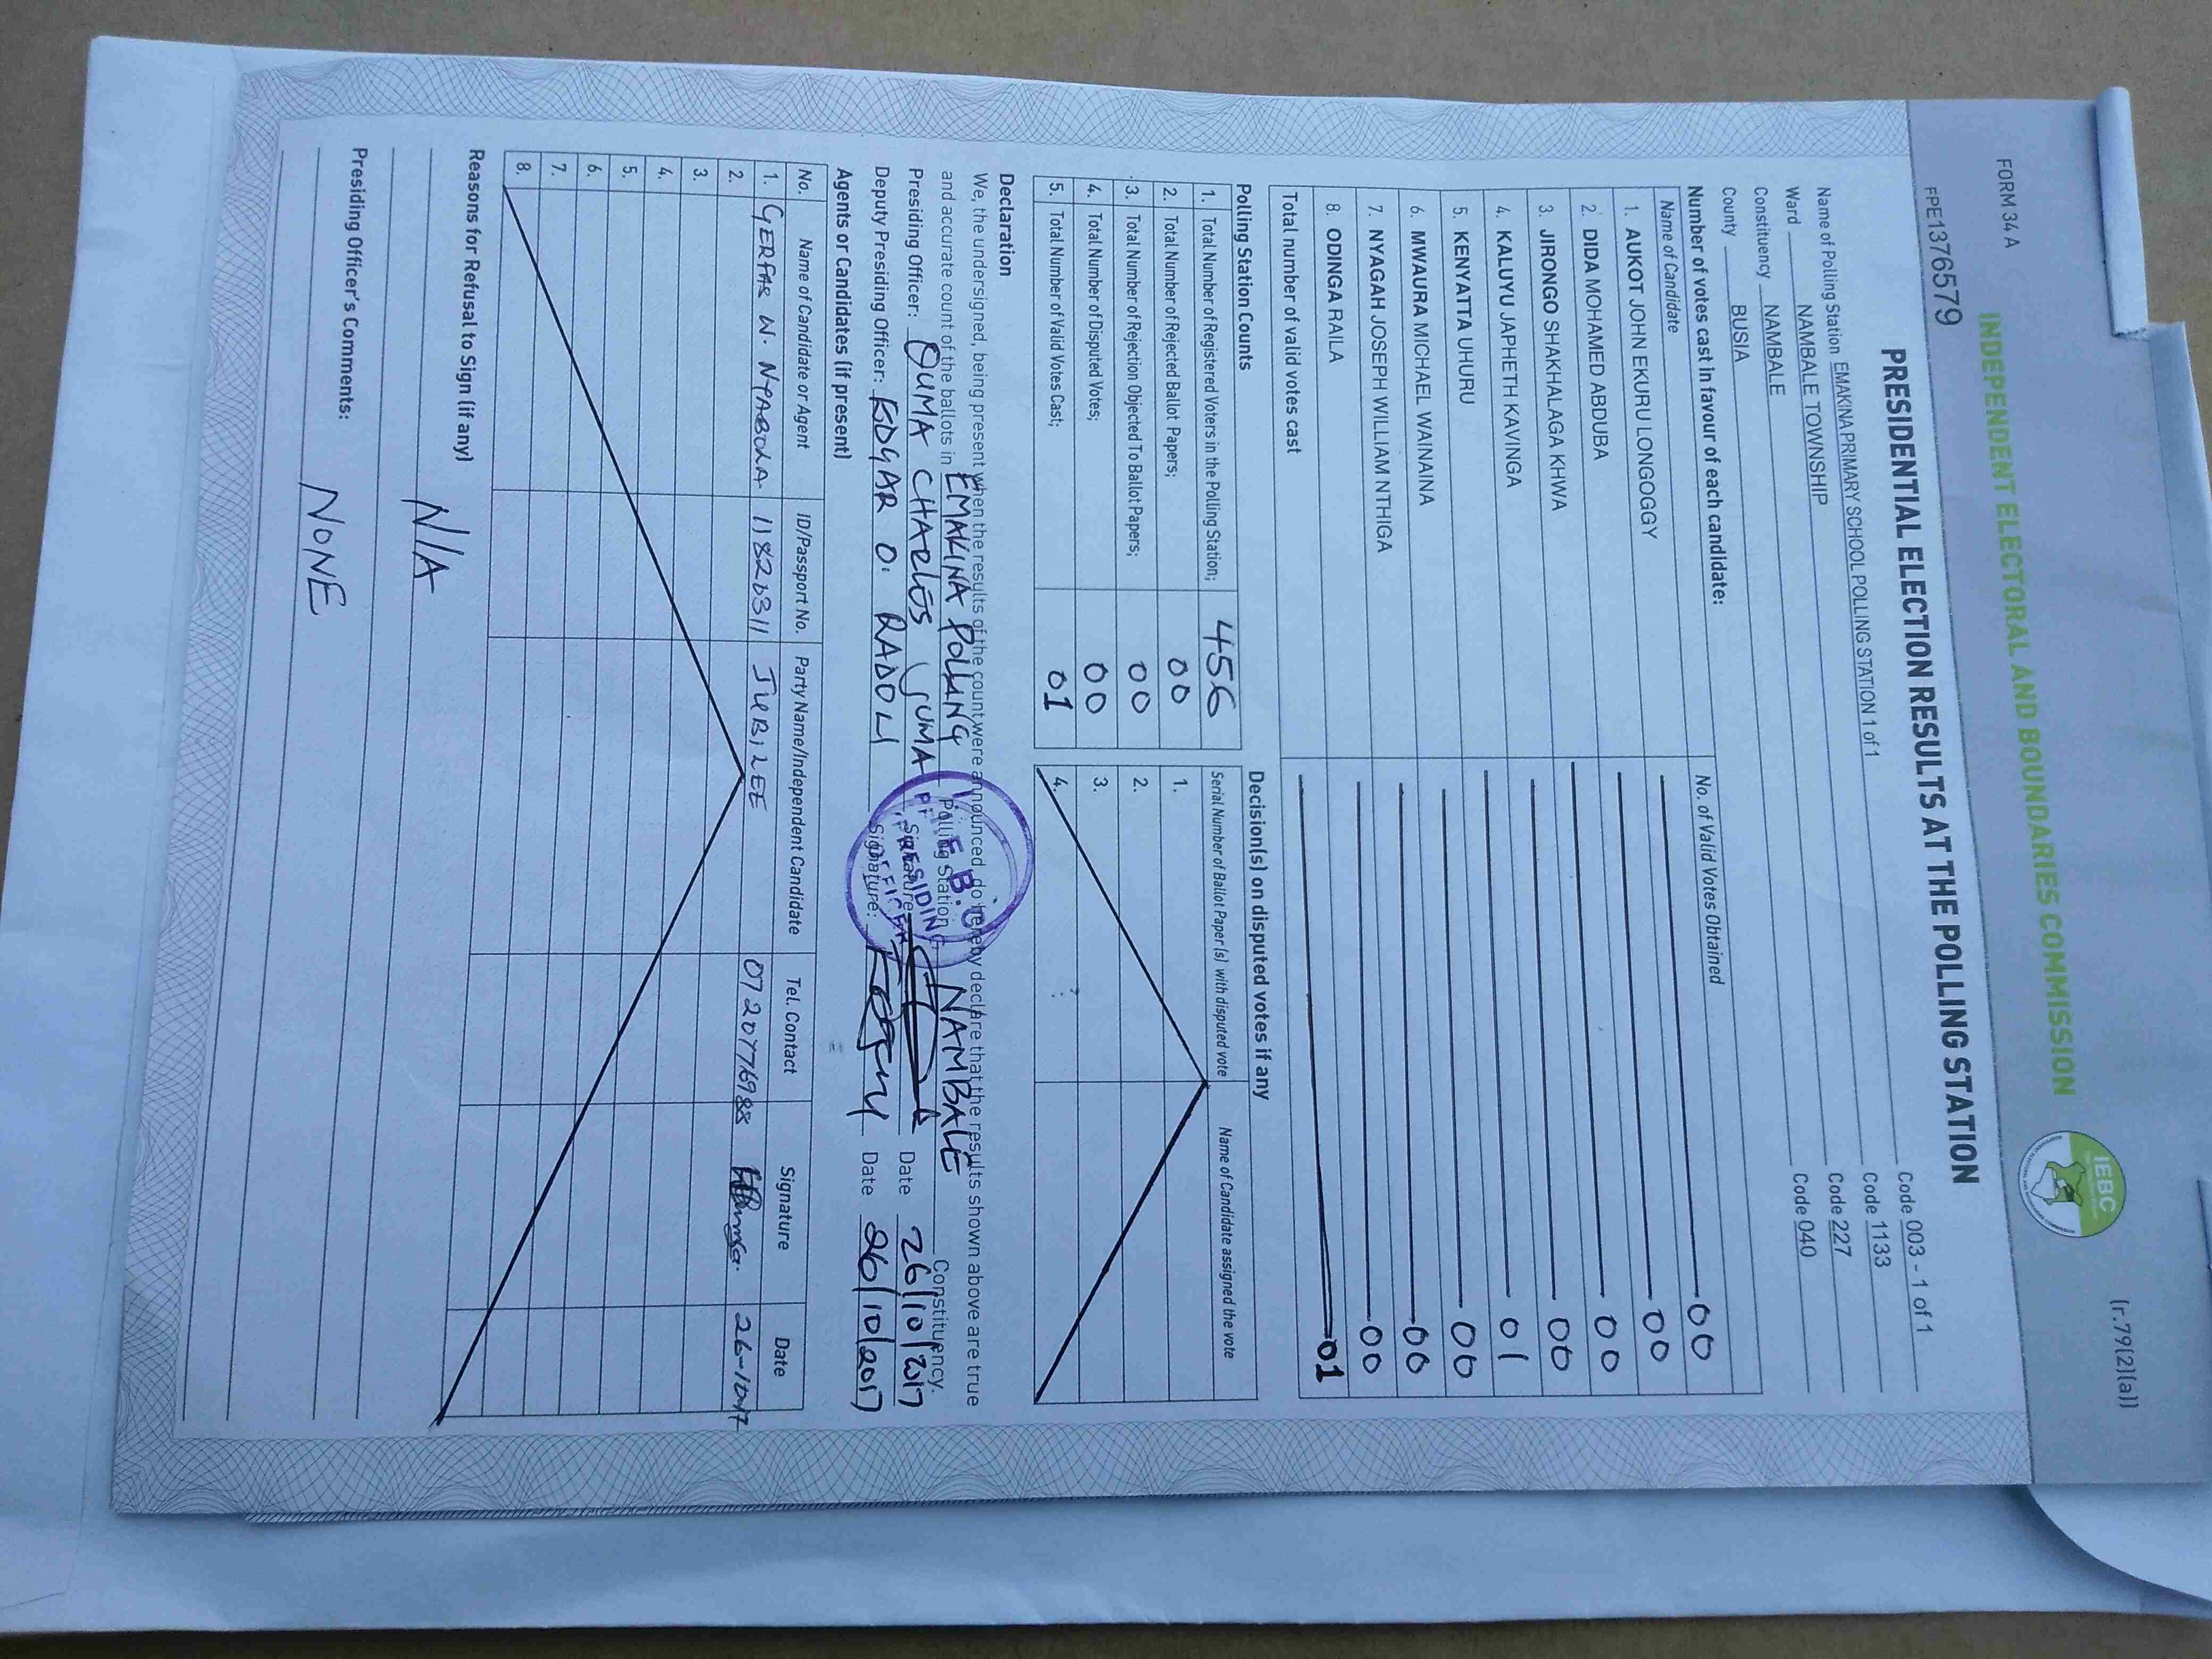 FORM 34 A
(r.79(2)(a))
INDEPENDENT ELECTORAL AND BOUNDARIES COMMISSION
IEBC
FPE1376579
PRESIDENTIAL ELECTION RESULTS AT THE POLLING STATION
Name of Polling Station EMAKINA PRIMARY SCHOOL POLLING STATION 1 of 1 Code 003 - 1 of 1
Ward NAMBALE TOWNSHIP Code 1133
Constituency NAMBALE Code 227
County BUSIA Code 040
Number of votes cast in favour of each candidate:
Name of Candidate No. of Valid Votes Obtained
1. AUKOT JOHN EKURU LONGOGGY 00
2. DIDA MOHAMED ABDUBA 00
3. JIRONGO SHAKHALAGA KHWA 00
4. KALUYU JAPHETH KAVINGA 00
5. KENYATTA UHURU 01
6. MWAURA MICHAEL WAINAINA 00
7. NYAGAH JOSEPH WILLIAM NTHIGA 00
8. ODINGA RAILA 00
Total number of valid votes cast 01
Polling Station Counts
1. Total Number of Registered Voters in the Polling Station; 456
2. Total Number of Rejected Ballot Papers; 00
3. Total Number of Rejection Objected To Ballot Papers; 00
4. Total Number of Disputed Votes; 00
5. Total Number of Valid Votes Cast; 01
Decision(s) on disputed votes if any
Serial Number of Ballot Paper (s) with disputed vote Name of Candidate assigned the vote
1.
2.
3.
4.
Declaration
We, the undersigned, being present when the results of the count were announced, do hereby declare that the results shown above are true
and accurate count of the ballots in EMAKINA POLLING Polling Station NAMBALE Constituency.
Presiding Officer: OUMA CHARLES JUMA Signature: Date 26/10/2017
Deputy Presiding Officer: EDGAR O. RADOLI Signature: Date 26/10/2017
I.E.B.C
PRESIDING
OFFICER
Agents or Candidates (if present)
No. Name of Candidate or Agent ID/Passport No. Party Name/Independent Candidate Tel. Contact Signature Date
1. W. JUBILEE
2.
3.
4.
5.
6.
7.
8.
Reasons for Refusal to Sign (if any)
N/A
Presiding Officer's Comments:
NONE